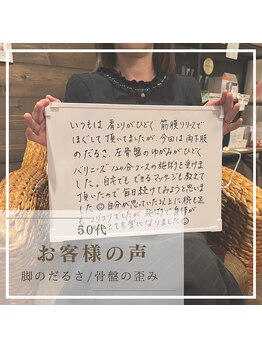 いつもは 肩こりがひどく 筋膜リリースで
ほぐして頂いてましたが、今回は両手脚
のだるさ、左骨盤のゆがみがひどく
バリニーズ120分コースの施術を受けま
した。自宅でもできるマッサージも教えて
頂いたので 毎日続けてみようと思いま
した☺自分が思っていた以上に腕も足
もコリコリでしたが 施術で身体が
とても楽になりました☺
50代
お客様の声
脚のだるさ/骨盤の歪み